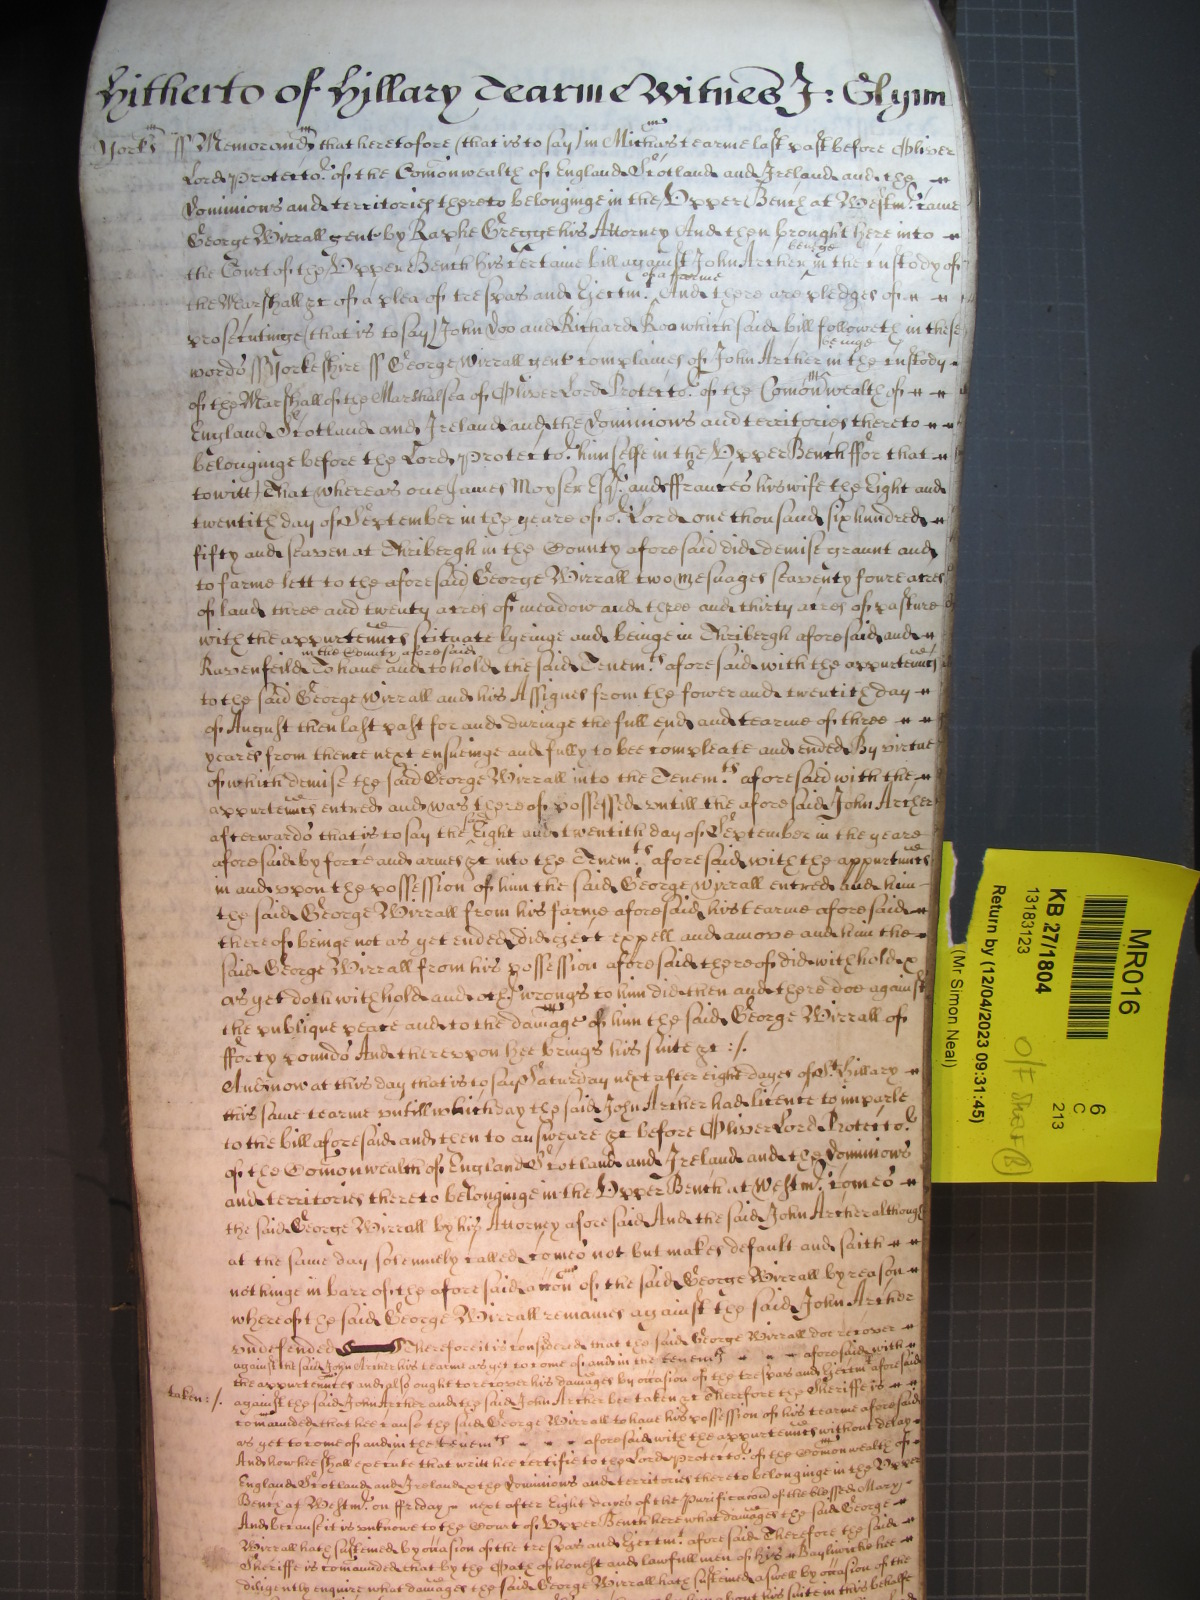 Hitherto of Hillary Tearme Witnes J: Glynn
Yorks ss Memorand that heretofore (that is to say) in Michas tearme last past before Oliver
Lord Protector of the Comonwealth of England Scotland and Ireland and the
Dominions and territories thereto belonginge in the Upper Bench at Westmr came
George Wirrall gent by Raphe Gregge his Attorney And then brought here into
the Court of the Upper Bench his certaine bill against John Archer beinge in the custody of
the Marshall &c of a plea of trespas and Ejectmt of a farme And there are pledges of
prosecutinge (that is to say) John Doo and Richard Roo which said bill followeth in these
words ss Yorkeshire ss George Wirrall gent complaines of John Archer beinge in the custody
of the Marshall of the Marshalsea of Oliver Lord Protector of the Comonwealth of
England Scotland and Ireland and the Dominions and territories thereto
belonginge before the Lord Protector himselfe in the Upper Bench ffor that
towitt) That whereas one James Moyser Esqr and ffrances his wife the Eight and
twentith day of September in the yeare of or Lord one thousand six hundred
fifty and seaven at Thribergh in the County aforesaid did demise graunt and
to farme lett to the aforesaid George Wirrall two mesuages seaventy foure acres
of land three and twenty acres of meadow and three and thirty acres of pasture
with the appurtennces scituate lyeinge and beinge in Thribergh aforesaid and
Ravenfeild in the County aforesaid To have and to hold the said Tenemts aforesaid with the appurtennces
to the said George Wirrall and his Assignes from the fower and twentith day
of August then last past for and duringe the full end and tearme of three
yeares from thence next ensueinge and fully to bee compleate and ended By virtue
of which demise the said George Wirrall into the Tenemts aforesaid with the
appurtennces entred and was thereof possessed untill the aforesaid John Archer
afterwards that is to say the said Eight and twentith day of September in the yeare
aforesaid by force and armes &c into the Tenemts aforesaid with the appurtennces
in and upon the possession of him the said George Wirrall entred and him
the said George Wirrall from his farme aforesaid his tearme aforesaid
thereof beinge not as yet ended did eject expell and amove and him the
said George Wirrall from his possession aforesaid thereof did withhold &
as yet doth withhold and othr wrongs to him did then and there doe against
the publique peace and to the damage of him the said George Wirrall of
fforty pounds And thereupon hee brings his suite &c :/.
And now at this day that is to say Saturday next after eight dayes of St Hillary
this same tearme untill which day the said John Archer had licence to imparle
to the bill aforesaid and then to answeare &c before Oliver Lord Protector
of the Comonwealth of England Scotland and Ireland and the Dominions
and territories thereto belonginge in the Upper Bench at Westmr comes
the said George Wirrall by his Attorney aforesaid And the said John Archer although
at the same day solemnely called comes not but makes default and saith
nothinge in barr of the aforesaid accon of the said George Wirrall by reason
whereof the said George Wirrall remaines against the said John Archer
undefended Therefore it is considered that the said George Wirrall doe recover
against the said John Archer his tearme as yet to come of and in the tenemts aforesaid with
the appurtennces and also ought to recover his damages by occasion of the trespas and Ejectmt aforesaid
taken :/. against the said John Archer and the said John Archer bee taken &c Therefore the Sheriffe is
comaunded that hee cause the said George Wirrall to have his possession of his tearme aforesaid
as yet to come of and in the tenemts aforesaid with the appurtennces without delay
And how hee shall execute that writt hee certifie to the Lord Protector of the Comonwealth of
England Scotland and Ireland & the Dominions and territories thereto belonginge in the Upper
Bench at Westmr on ffriday next after Eight dayes of the Purificacon of the blessed Mary
And because it is unknowne to the Court of Upper Bench here what damages the said George
Wirrall hath susteined by occasion of the trespas and Ejectmt aforesaid Therefore the said
Sheriffe is comaunded that by the Oath of honest and lawfull men of his Bayliwicke hee
diligently enquire what damages the said George Wirrall hath susteined aswell by occasion of the
about his suite in this behalfe
MR016
6
C
213
KB 27/1804
13183123
O/F
Return by (12/04/2023 09:31:45)
(Mr Simon Neal)